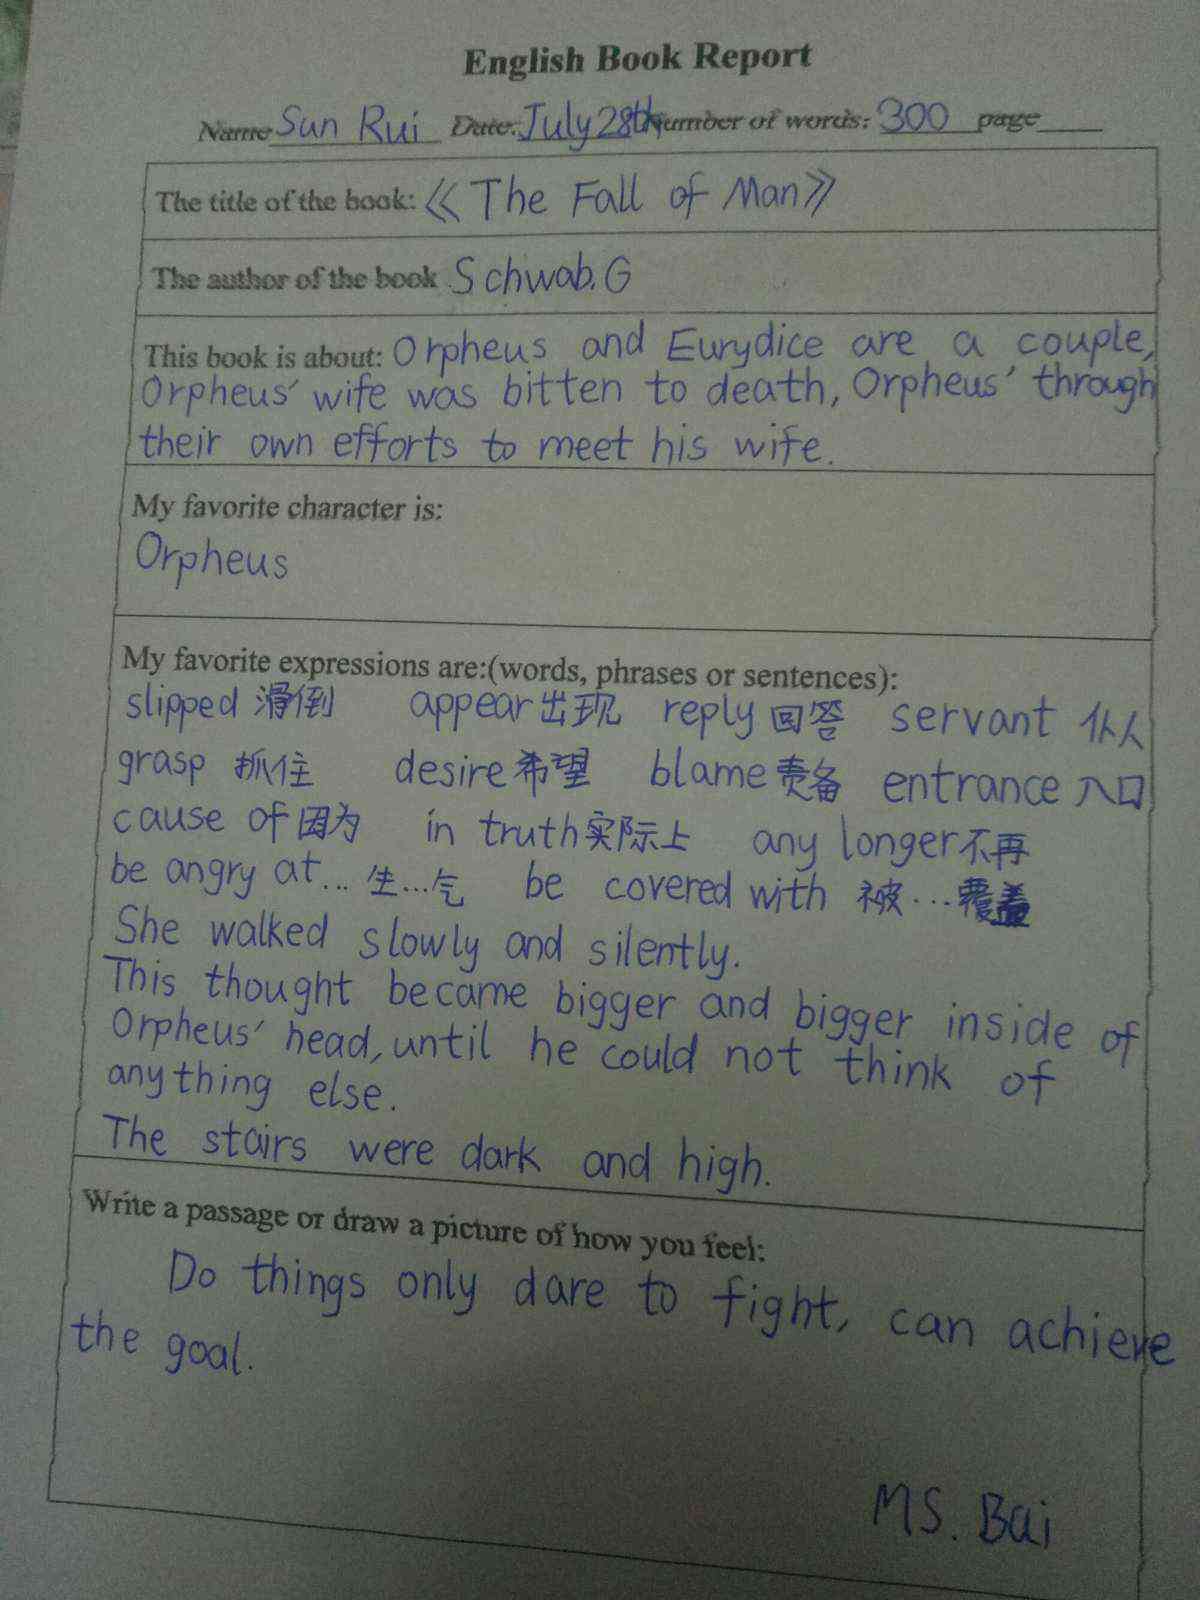 English Book Report
Name Sun Rui Date: July 28th Number of words: 300 page
The title of the book: 《The Fall of Man》
The author of the book Schwab.G
This book is about: Orpheus and Eurydice are a couple,
Orpheus' wife was bitten to death, Orpheus' through
their own efforts to meet his wife.
My favorite character is:
Orpheus
My favorite expressions are:(words, phrases or sentences):
slipped 滑倒 appear出现 reply回答 servant 仆人
grasp 抓住 desire希望 blame责备 entrance入口
cause of因为 in truth实际上 any longer不再
be angry at... 生...气 be covered with 被...覆盖
She walked slowly and silently.
This thought became bigger and bigger inside of
Orpheus' head, until he could not think of
anything else.
The stairs were dark and high.
Write a passage or draw a picture of how you feel:
Do things only dare to fight, can achieve
the goal.
MS. Bai